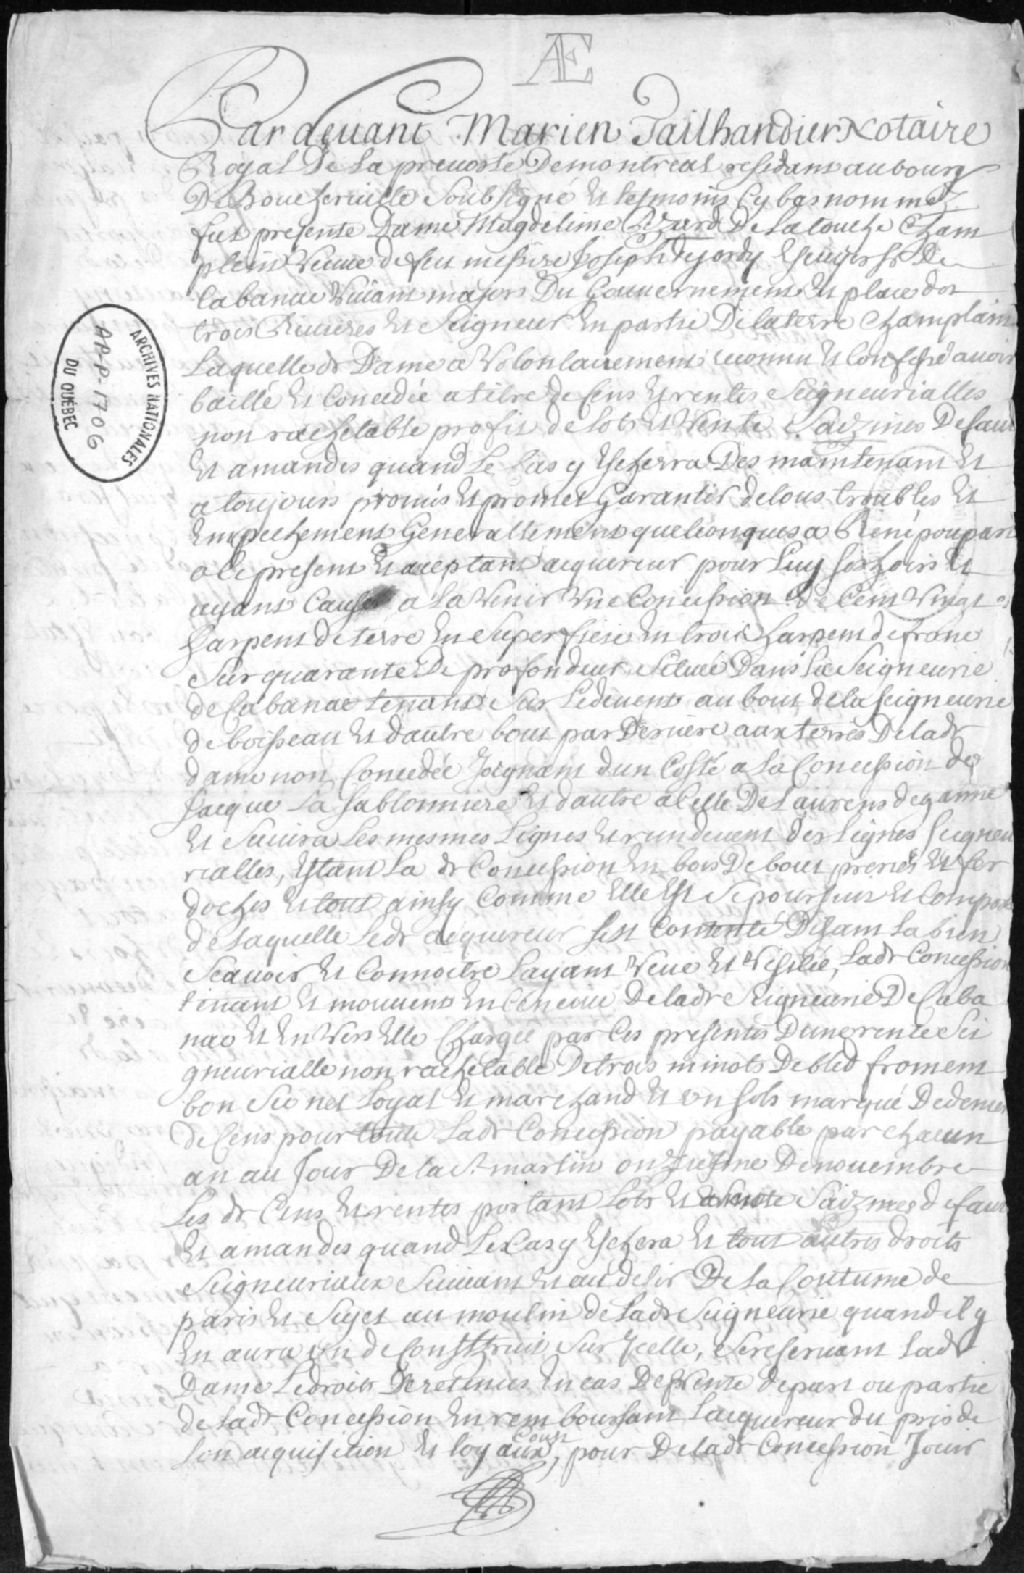 Æ
Pardevant Marien Tailhandier Notaire
Royal De La prevosté De montreal residant au bourg
De Boucherville Soubsigné Et tesmoins Cy bas nommez
fut presente Dame Magdelaine Chezard De Latouche Cham
plein Veuve de feu messire Joseph Dejordy Escuyer Sr De
Cabanac Vivant major Du Gouvernement Et place des
trois Rivieres Et Seigneur En partie De la terre Champlain
Laquelle de Dame a Volontairement reconnu Et Confessé avoir
baillé Et Concedée a titre de Cens Et rentes Seigneurialles
non rachetable profit de lots Et Vente Saizines Defaut
Et amandes quand Le Cas y Escherra Des maintenant Et
a toujours promis Et promet Garantir de tous troubles Et
Empechement Generallement quelconques a René poupart
a ce present Et aceptant acquereur pour Luy Ses hoirs Et
ayant Cause a La Venir Une Concession De Cent Vingt
harpent de terre En Superficie En trois harpent de front
Sur quarante De profondeur Scituée Dans La Seigneurie
de Cabanac tenant Sur Le devent au bout de la Seigneurie
de boisseau Et dautre bout par Deriere aux terres De lad
dame non Concedée Joignant dun Costé a La Concession de
Jacque La Sablonniere Et dautre a Celle De Laurens
Et Suivra Les mesmes Lignes Et rundevent des Lignes Seigneu
rialles, Estant La de Concession En bois De bout preries Et fer
doches Et tout ainsy Comme Elle Est Se poursuit Et Comporte
de Laquelle Led acquereur Sest Contenté Disant La bien
Scavoir Et Connoitre Layant Veue Et Visitée, Lade Concession
tenant Et mouvent En Censive De lade Seigneurie De Caba
nac Et En Vers Elle Chargée par Ces presentes Dune rente Sei
gneurialle non rachetable De trois minots De bled froment
bon Sec net Loyal Et marchand Et un Sols marqué De denier
de Cens pour toute Lade Concession payable par chacun
an au Jour De la St martin onziesme De novembre
Les de Cens Et rentes portant Lots Et Vente Saizines defaut
Et amandes quand Le Cas y Eschera Et tout autres droits
Seigneuriaux Suivant Et au desir De la Coutume de
paris Et Sujet au moulin de lade Seigneurie quand il y
En aura un de Consttruit Sur Icelle, Se reservant Lade
Dame Le droit De retenues En cas De Vente de part ou partie
de lade Concession En remboursant Lacquereur du pris de
Son acquisition Et loyaux Cous, pour De lade Concession Jouir
ARCHIVES NATIONALES
APP-1706
DU QUÉBEC